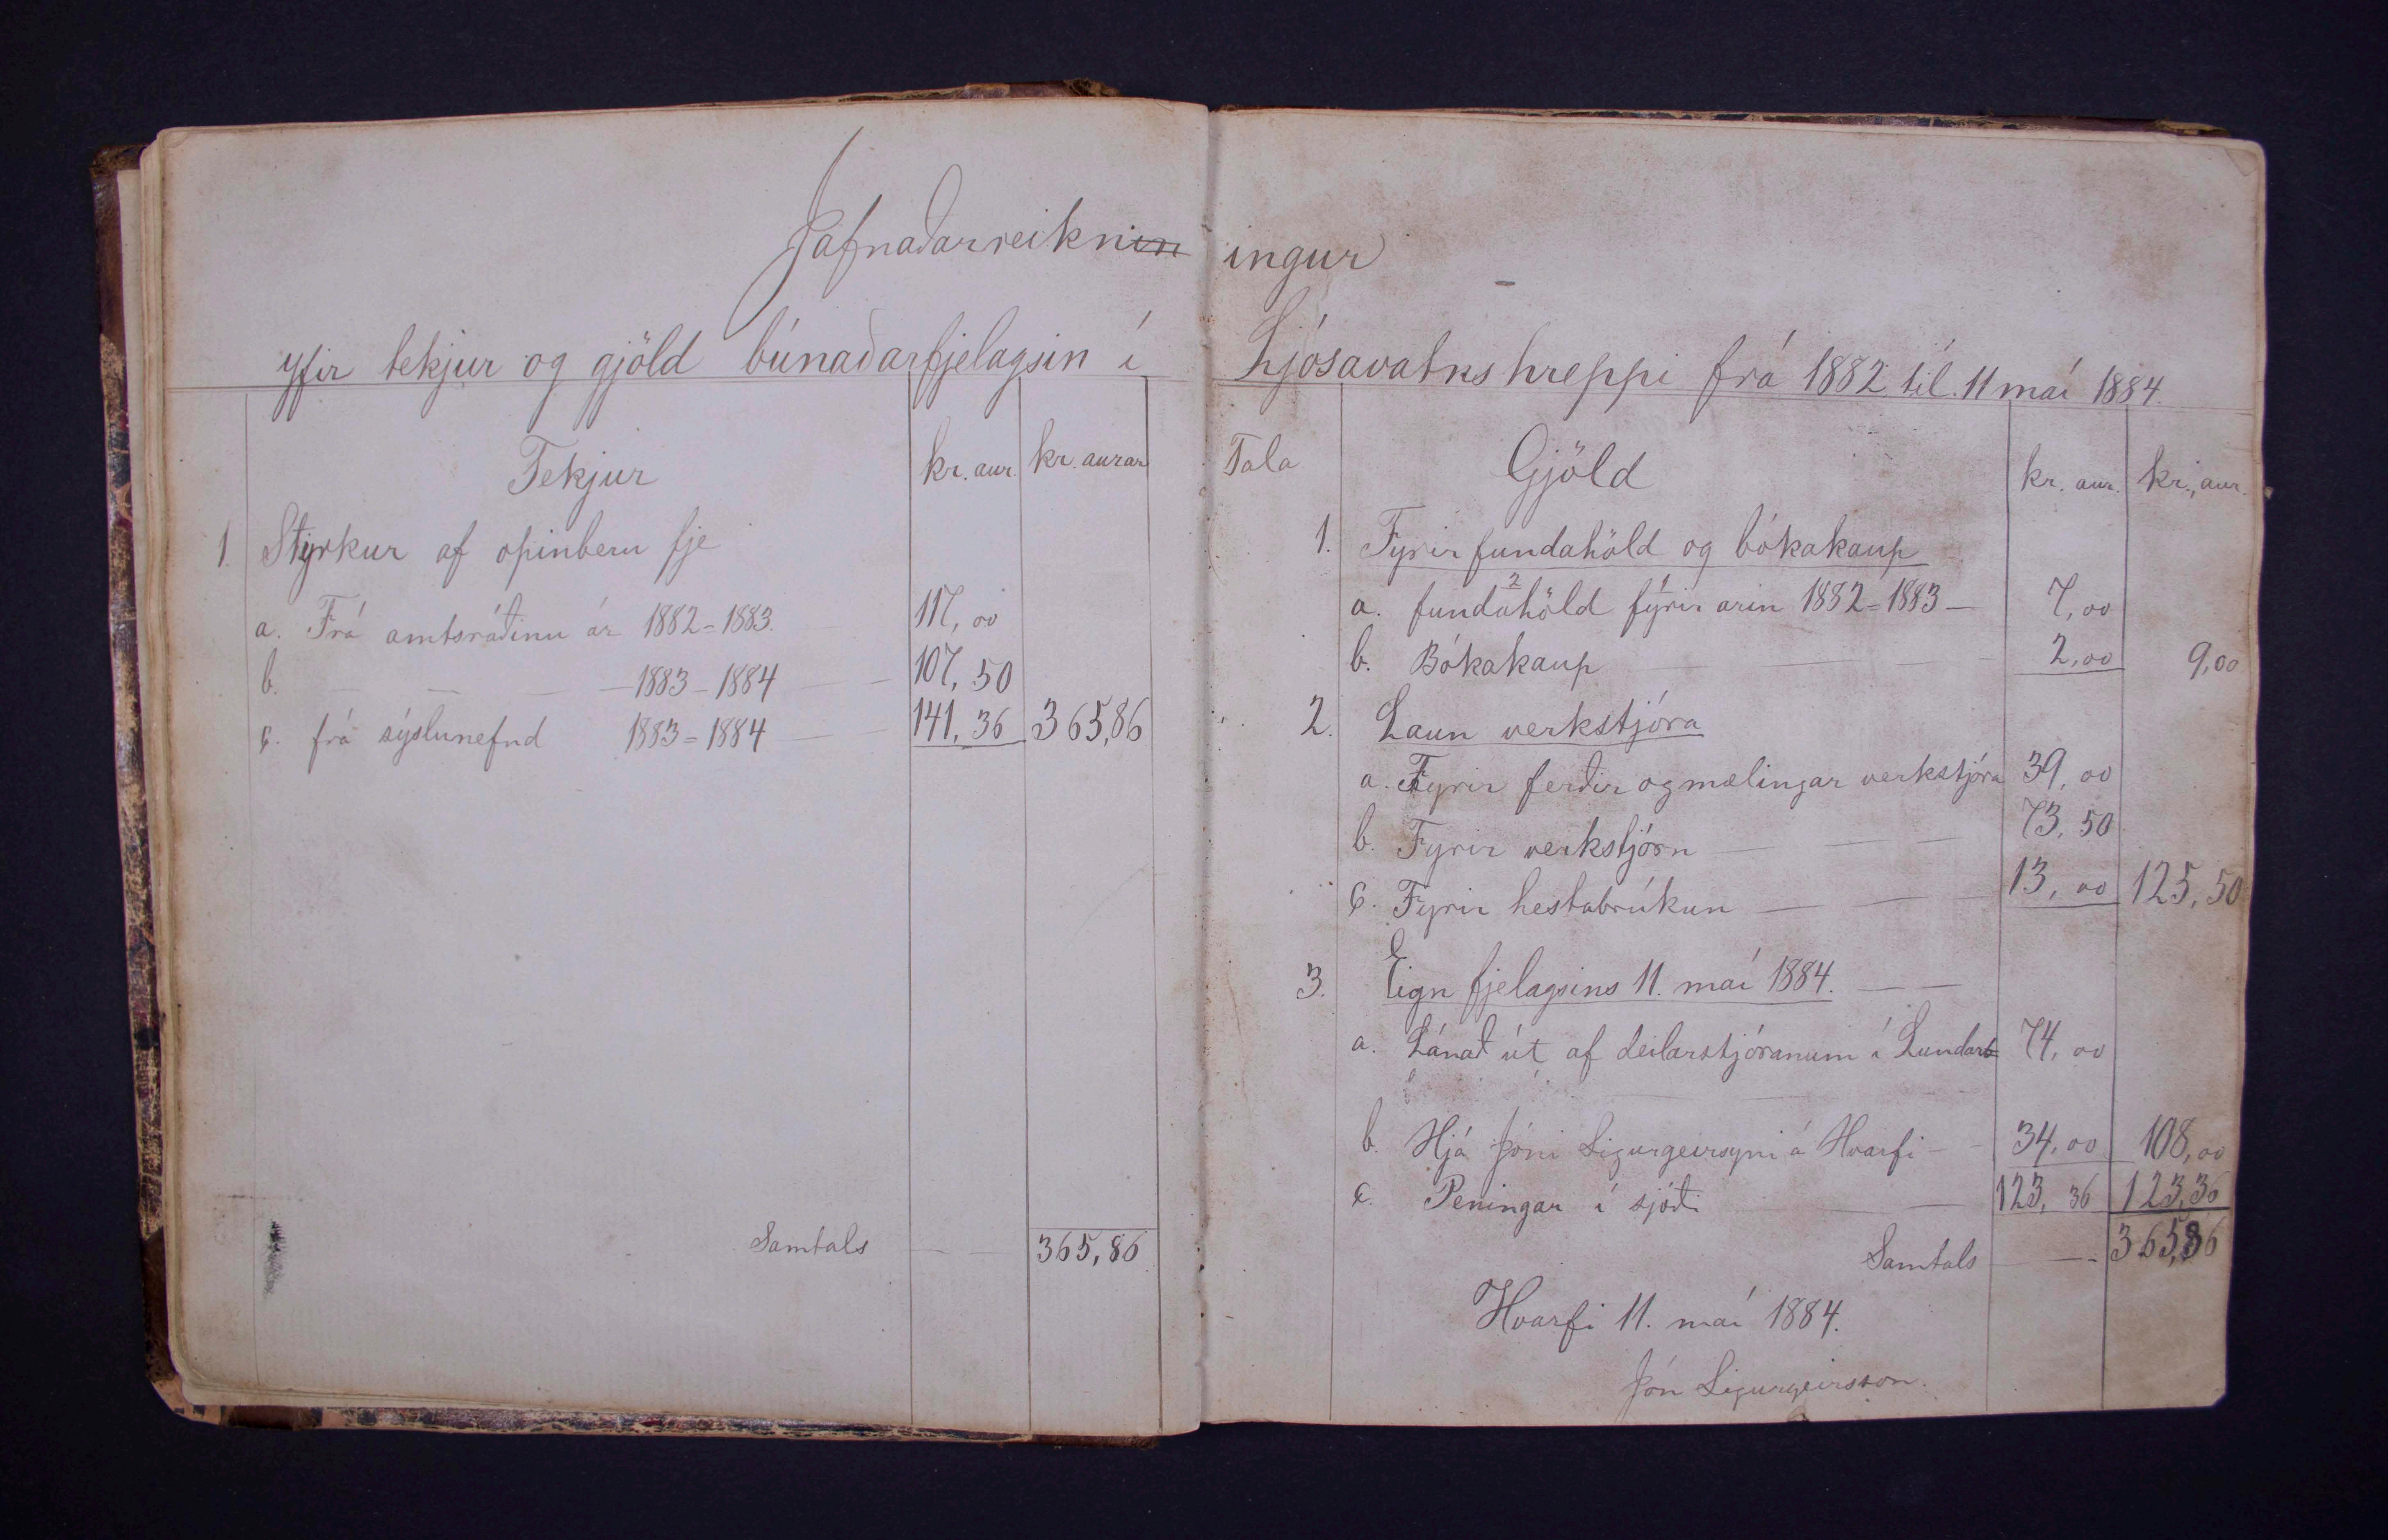 Jafnaðarreiknin ingur
yfir tekjur og gjöld búnaðarfjelagsin í Ljósavatnshreppi frá 1882 til 11 maí 1884.
Tekjur kr. aur. kr. aurar
1. Styrkur af opinberu fje
a. Frá amtsráðinu ár 1882-1883. 117,00
b. — — — 1883-1884 — — 107,50
c. frá sýslunefnd 1883-1884 — — 141,36 365,86
Samtals — — 365,86
Tala Gjöld kr. aur. kr. aur.
1. Fyrir fundahöld og bókakaup
a. funda2höld fyrir árin 1882-1883 — 7,00
b. Bókakaup — — — 2,00 9,00
2. Laun verkstjóra
a. Fyrir ferðir og mælingar verkstjóra 39,00
b. Fyrir verkstjórn — — — 73,50
c. Fyrir hestabrúkun — — — 13,00 125,50
3. Eign fjelagsins 11. maí 1884. — —
a. Lánað út af deildarstjóranum í Lundarb 74,00
b. Hjá Jóni Sigurgeirsyni á Hvarfi — 34,00 108,00
c. Peningar í sjóði — — — 123,36 123,36
Samtals — — 365,86
Hvarfi 11. maí 1884.
Jón Sigurgeirsson.